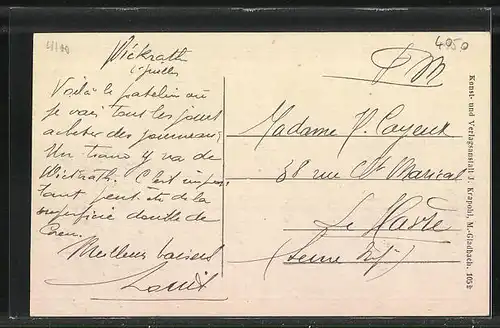 4050
Wickrath
juillet
F M
Voilà le patelin où
je vais tous les jours
acheter des journaux.
Un tram y va de
Wickrath. C'est impor-
tant peut-être de la
superficie double de
Caen.
Meilleurs baisers
Louis
Madame P. Cayeux
38 rue Ste Marie
Le Havre
(Seine Inf.)
Kunst- und Verlagsanstalt J. Krapohl, M.-Gladbach. 105b